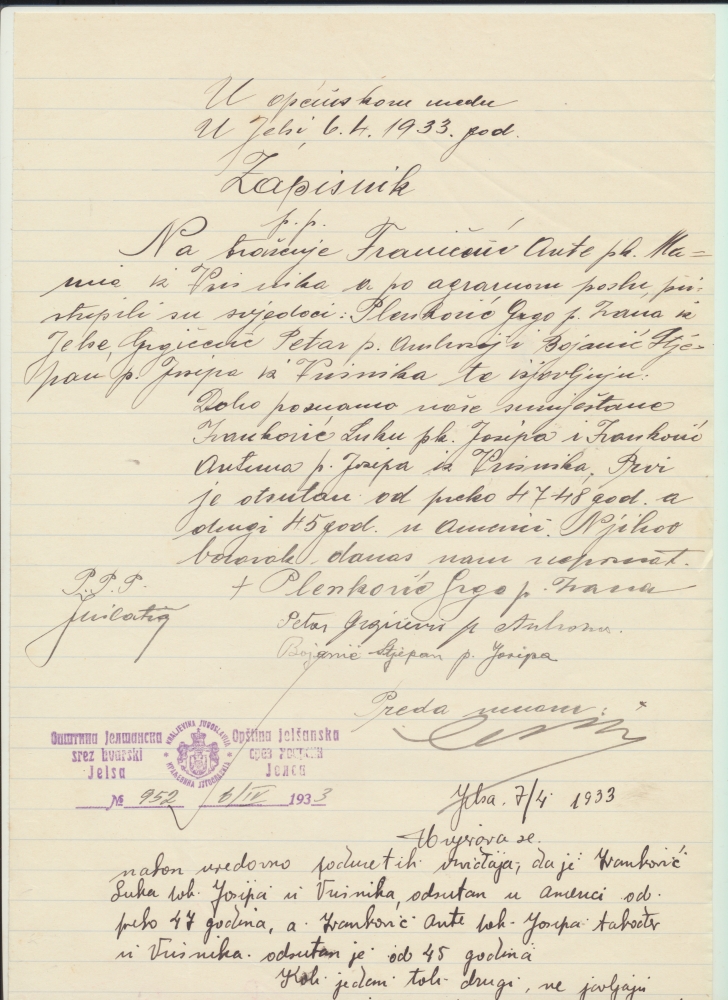 U općinskom uredu
U Jelsi 6.4.1933. god.
Zapisnik
p.p.
Na traženje Franičević Ante pk. Ma=
rina iz Vrisnika a po agrarnom poslu, pri-
stupili su svjedoci: Plenković Grgo p. Ivana iz
Jelse, Grgičević Petar p. Andrije i Bojanić Stje-
pan p. Josipa iz Vrisnika te izjavljuju:
Dobro poznamo naše sumještane
Ivanković Luku pk. Josipa i Ivanković
Antuna p. Josipa iz Vrisnika. Prvi
je otsutan od preko 47-48 god. a
drugi 45 god. u Americi. Njihov
boravak danas nam nepoznat.
P.P.P. + Plenković Grgo p. Ivana
Petar Grgicevic p
Bojanić Stjepan p. Josipa
Preda menom:
Општина Јелшанска
srez hvarski
Jelsa
KRALJEVINA JUGOSLAVIJA
КРАЉЕВИНА ЈУГОСЛАВИЈА
Opština Jelšanska
срез хварски
Јелса
№ 952 6/IV 1933
Jelsa. 7/4 1933
Uvjerava se.
nakon uredovno poduzetih izviđaja, da je Ivanković
Luka pok. Josipa iz Vrisnika, odsutan u Americi od
preko 47 godina, a Ivanković Ante pok. Josipa također
iz Vrisnika odsutan je od 45 godina
Koli jedan toli drugi, ne javljaju